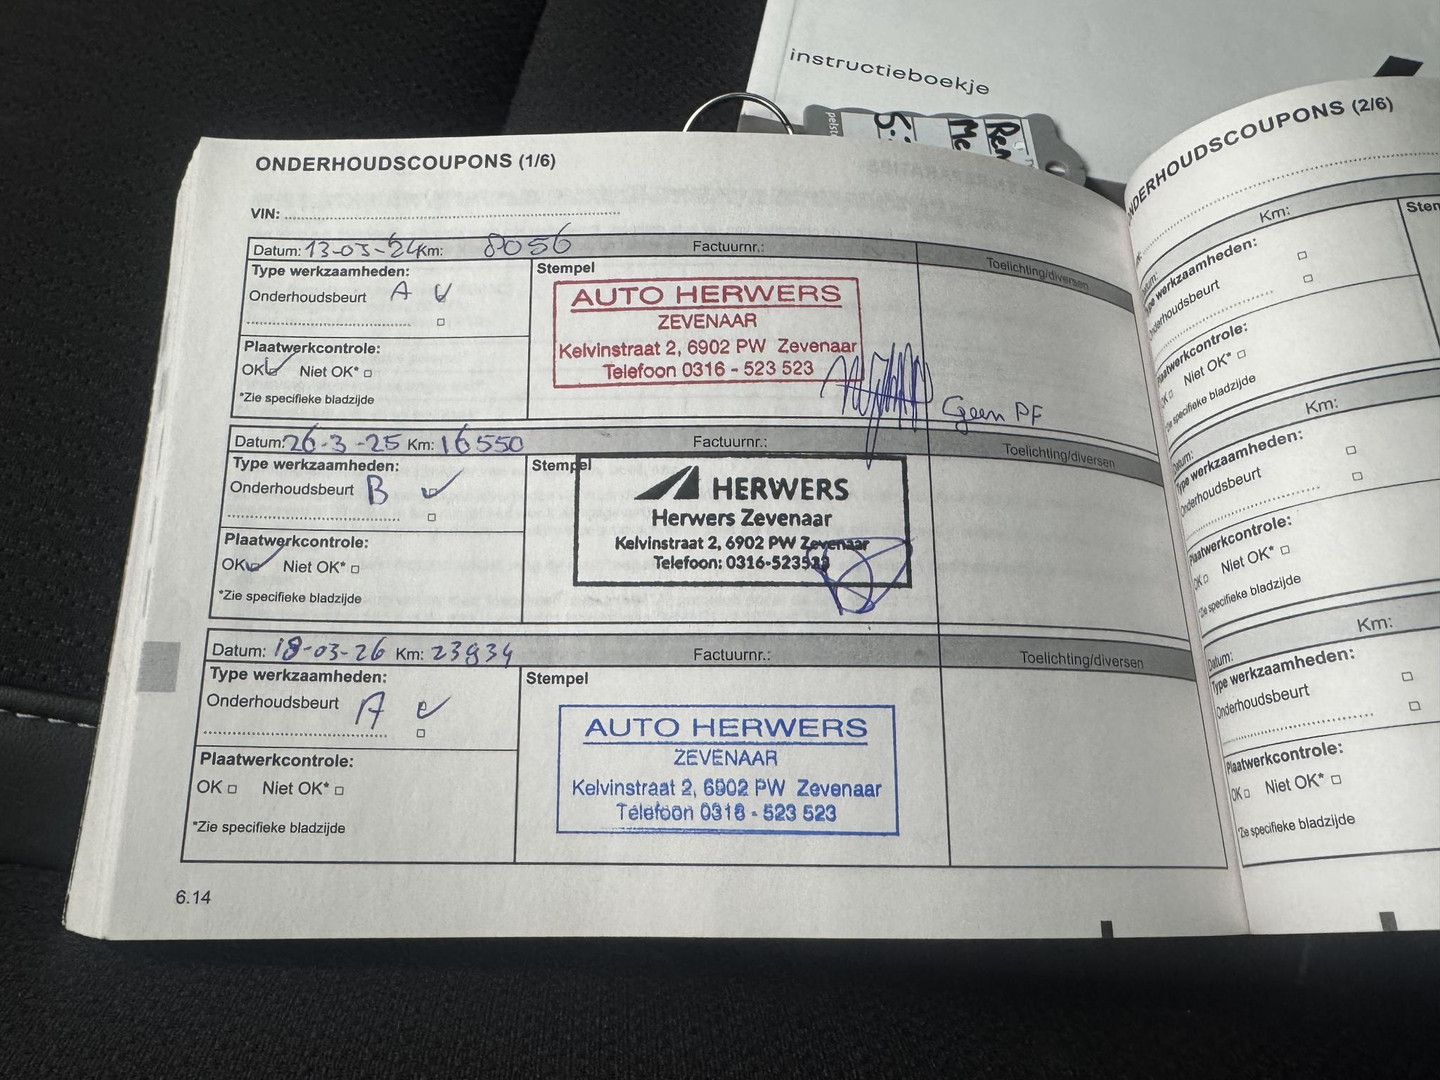 instructieboekje
ONDERHOUDSCOUPONS (1/6)
VIN:
Datum: 13-03-24 Km: 8056 Factuurnr.:
Toelichting/diversen
Type werkzaamheden:
Stempel
Onderhoudsbeurt A
AUTO HERWERS
ZEVENAAR
Kelvinstraat 2, 6902 PW Zevenaar
Telefoon 0316 - 523 523
Plaatwerkcontrole:
OK Niet OK*
*Zie specifieke bladzijde
Geen PF
Datum: 26-3-25 Km: 16550 Factuurnr.:
Toelichting/diversen
Type werkzaamheden:
Stempel
Onderhoudsbeurt B
HERWERS
Herwers Zevenaar
Kelvinstraat 2, 6902 PW Zevenaar
Telefoon: 0316-523523
Plaatwerkcontrole:
OK Niet OK*
*Zie specifieke bladzijde
Datum: 18-03-26 Km: 23934 Factuurnr.:
Toelichting/diversen
Type werkzaamheden:
Stempel
Onderhoudsbeurt A
AUTO HERWERS
ZEVENAAR
Kelvinstraat 2, 6902 PW Zevenaar
Telefoon 0316 - 523 523
Plaatwerkcontrole:
OK Niet OK*
*Zie specifieke bladzijde
6.14
NDERHOUDSCOUPONS (2/6)
Km:
Stem
Type werkzaamheden:
Onderhoudsbeurt
Plaatwerkcontrole:
Niet OK*
specifieke bladzijde
Km:
Datum:
Type werkzaamheden:
Onderhoudsbeurt
Plaatwerkcontrole:
OK Niet OK*
*Zie specifieke bladzijde
Km:
Datum:
Type werkzaamheden:
Onderhoudsbeurt
Plaatwerkcontrole:
OK Niet OK*
*Zie specifieke bladzijde